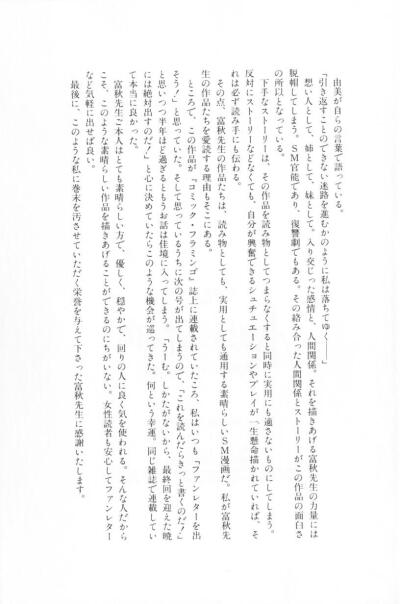 由美が自らの言葉で語っている。
「引き返すことのできない迷路を進むかのように私は落ちてゆく――」
想い人として、姉として、妹として。入り交じった感情と、人間関係。それを描きあげる富秋先生の力量には
脱帽してしまう。ＳＭ官能であり、復讐劇でもある。その絡み合った人間関係とストーリーがこの作品の面白さ
の所以となっている。
下手なストーリーは、その作品を読み物としてつまらなくすると同時に実用にも適さないものにしてしまう。
反対にストーリーなどなくても、自分が興奮できるシュチュエーションやプレイが一生懸命描かれていれば、そ
れは必ず読み手にも伝わる。
その点、富秋先生の作品たちは、読み物としても、実用としても通用する素晴らしいＳＭ漫画だ。私が富秋先
生の作品たちを愛読する理由もそこにある。
ところで、この作品が「コミック・フラミンゴ」誌上に連載されていたころ、私はいつも「ファンレターを出
そう！」と思っていた。そして思っているうちに次の号が出てしまうので、「これを読んだらきっと書くのだ！」
と思いつつ半年ほど過ぎるともうお話は佳境に入ってしまう。「うーむ。しかたがないから、最終回を迎えた暁
には絶対出すのだ！」と心に決めていたらこのような機会が巡ってきた。何という幸運。同じ雑誌で連載してい
て本当に良かった。
富秋先生ご本人はとても素晴らしい方で、優しく、穏やかで、回りの人に良く気を使われる。そんな人だから
こそ、このような素晴らしい作品を描きあげることができるのにちがいない。女性読者も安心してファンレター
など気軽に出せば良い。
最後に、このような私に巻末を汚させていただく栄誉を与えて下さった富秋先生に感謝いたします。